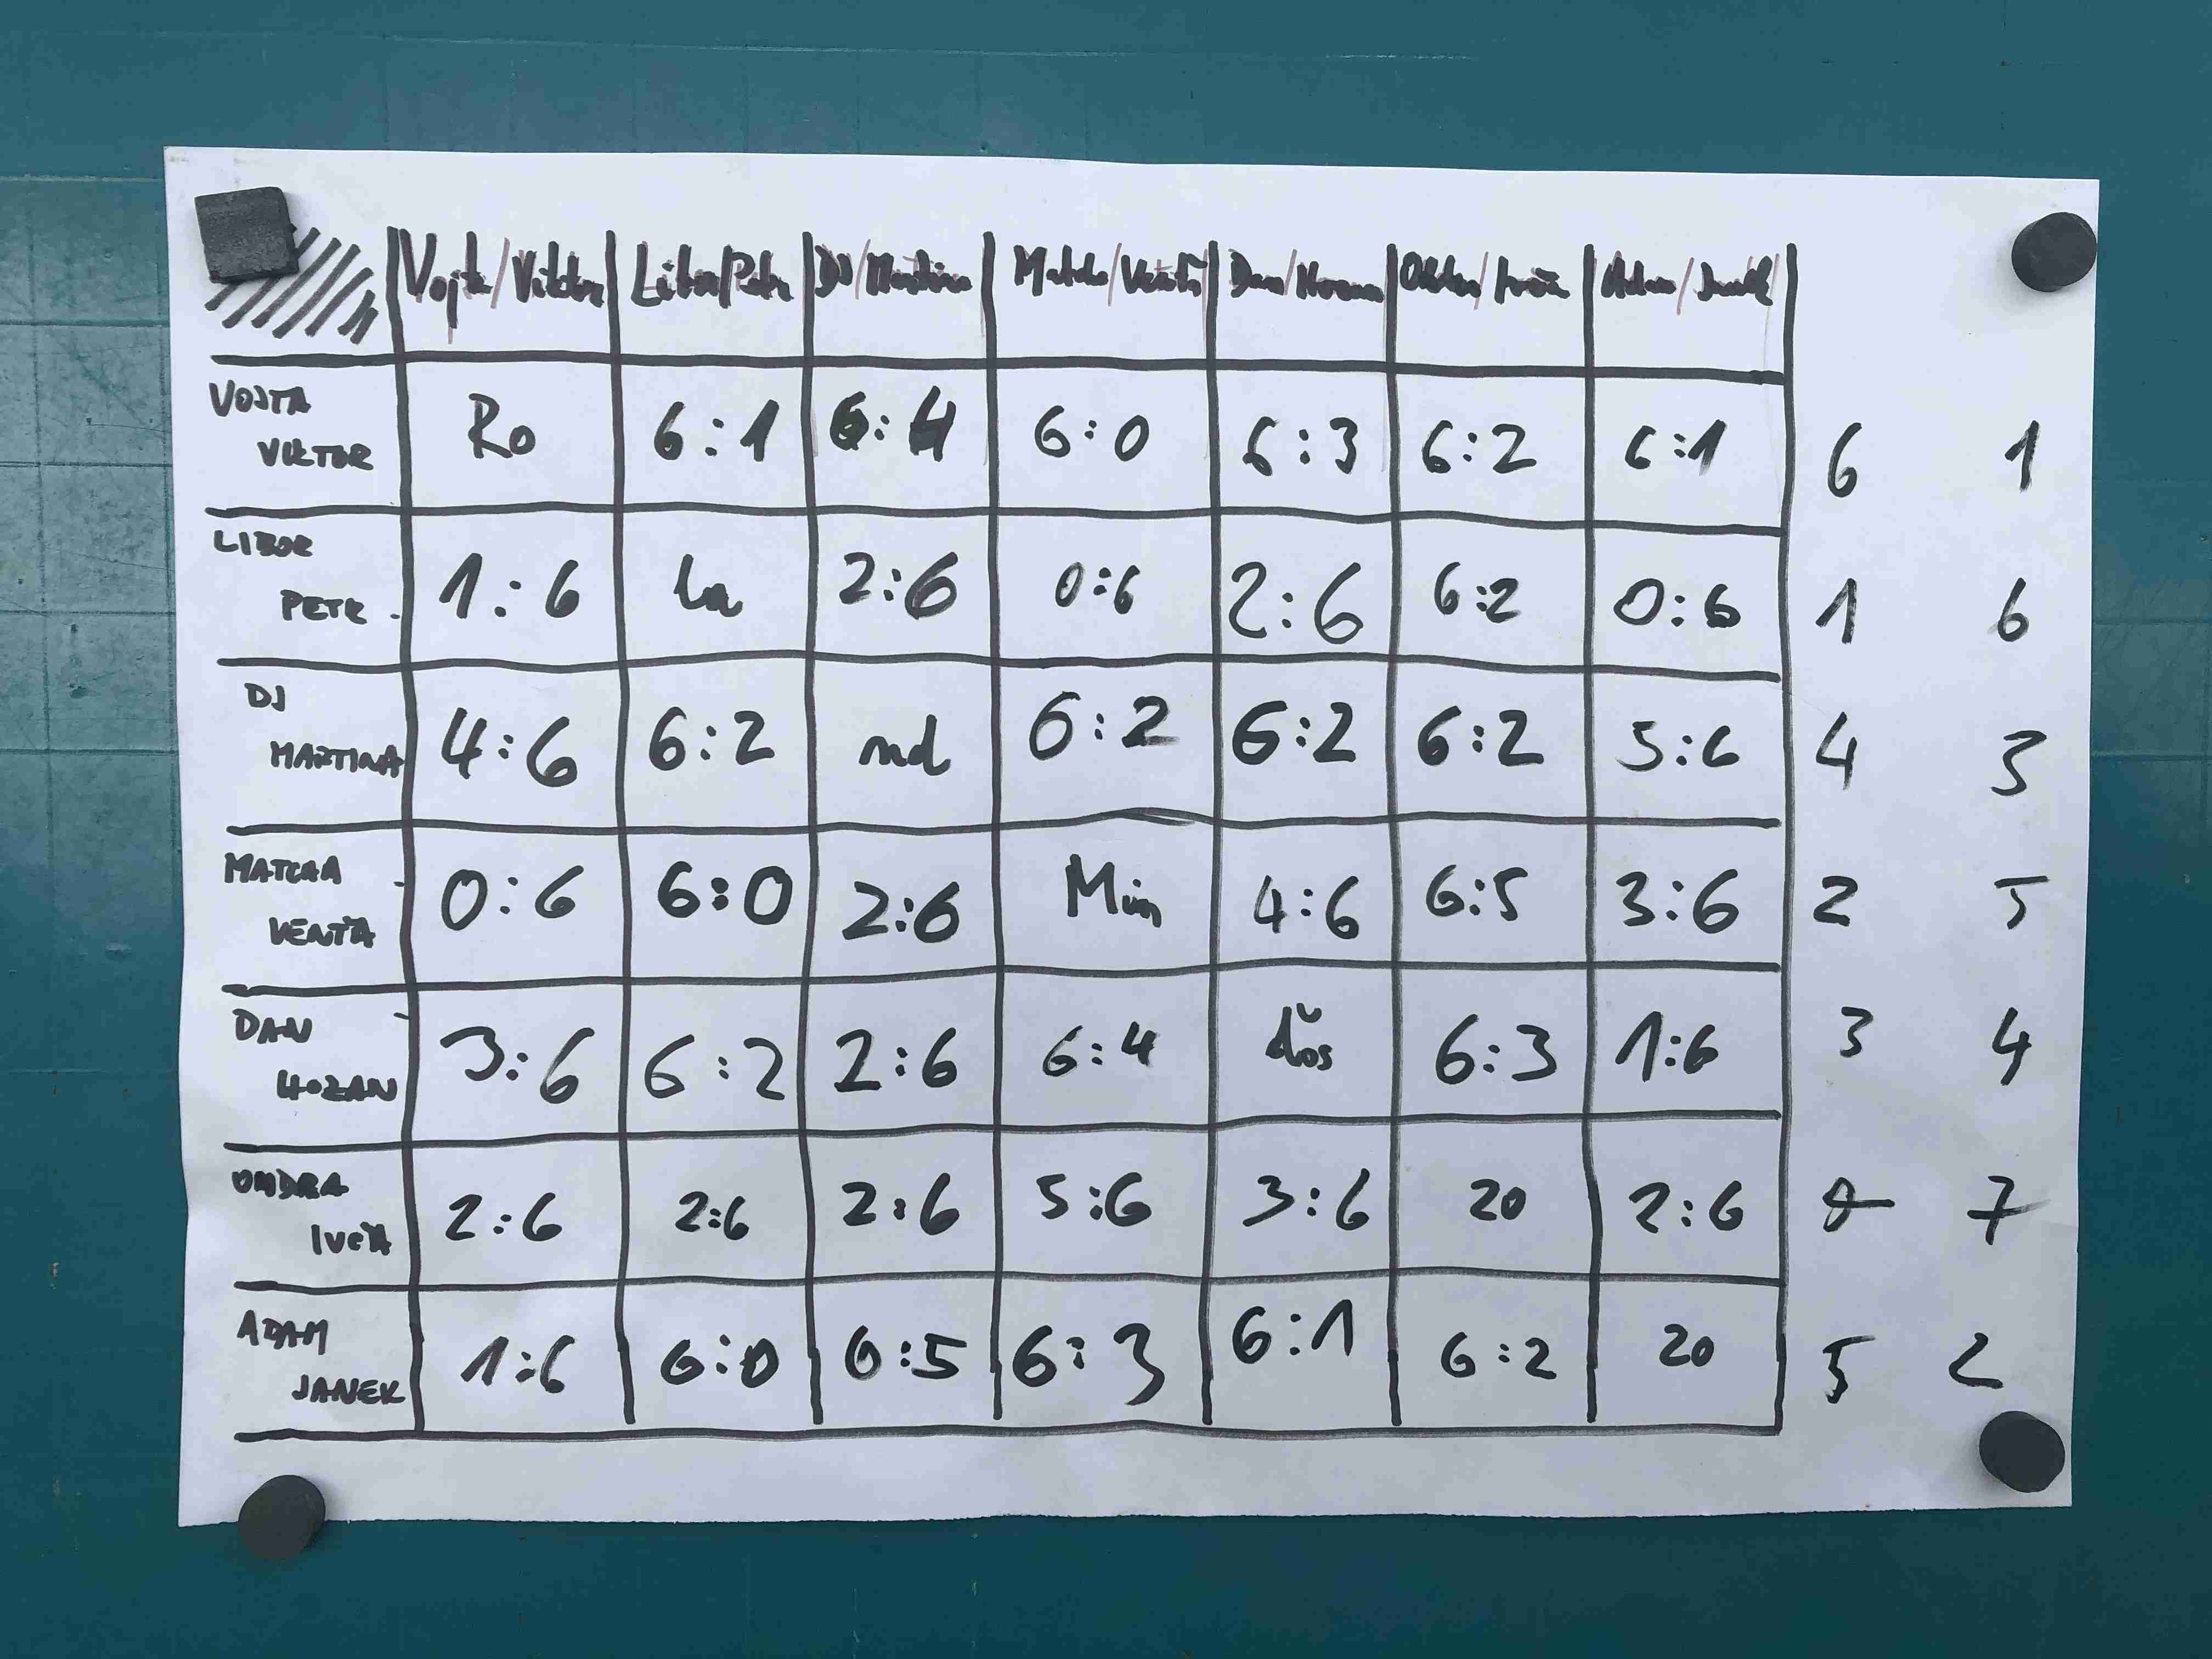 Vojta/Viktor Libor/Petr DJ/Martina Matcha/Venta Dan/Honzan Ondra/Iveta Adam/Janek
VOJTA
VIKTOR Ro 6:1 6:4 6:0 6:3 6:2 6:1 6 1
LIBOR
PETR 1:6 la 2:6 0:6 2:6 6:2 0:6 1 6
DJ
MARTINA 4:6 6:2 nd 6:2 6:2 6:2 5:6 4 3
MATCHA
VENTA 0:6 6:0 2:6 Min 4:6 6:5 3:6 2 5
DAN
HOZAN 3:6 6:2 2:6 6:4 ďos 6:3 1:6 3 4
ONDRA
IVETA 2:6 2:6 2:6 5:6 3:6 20 2:6 0 7
ADAM
JANEK 1:6 6:0 6:5 6:3 6:1 6:2 20 5 2